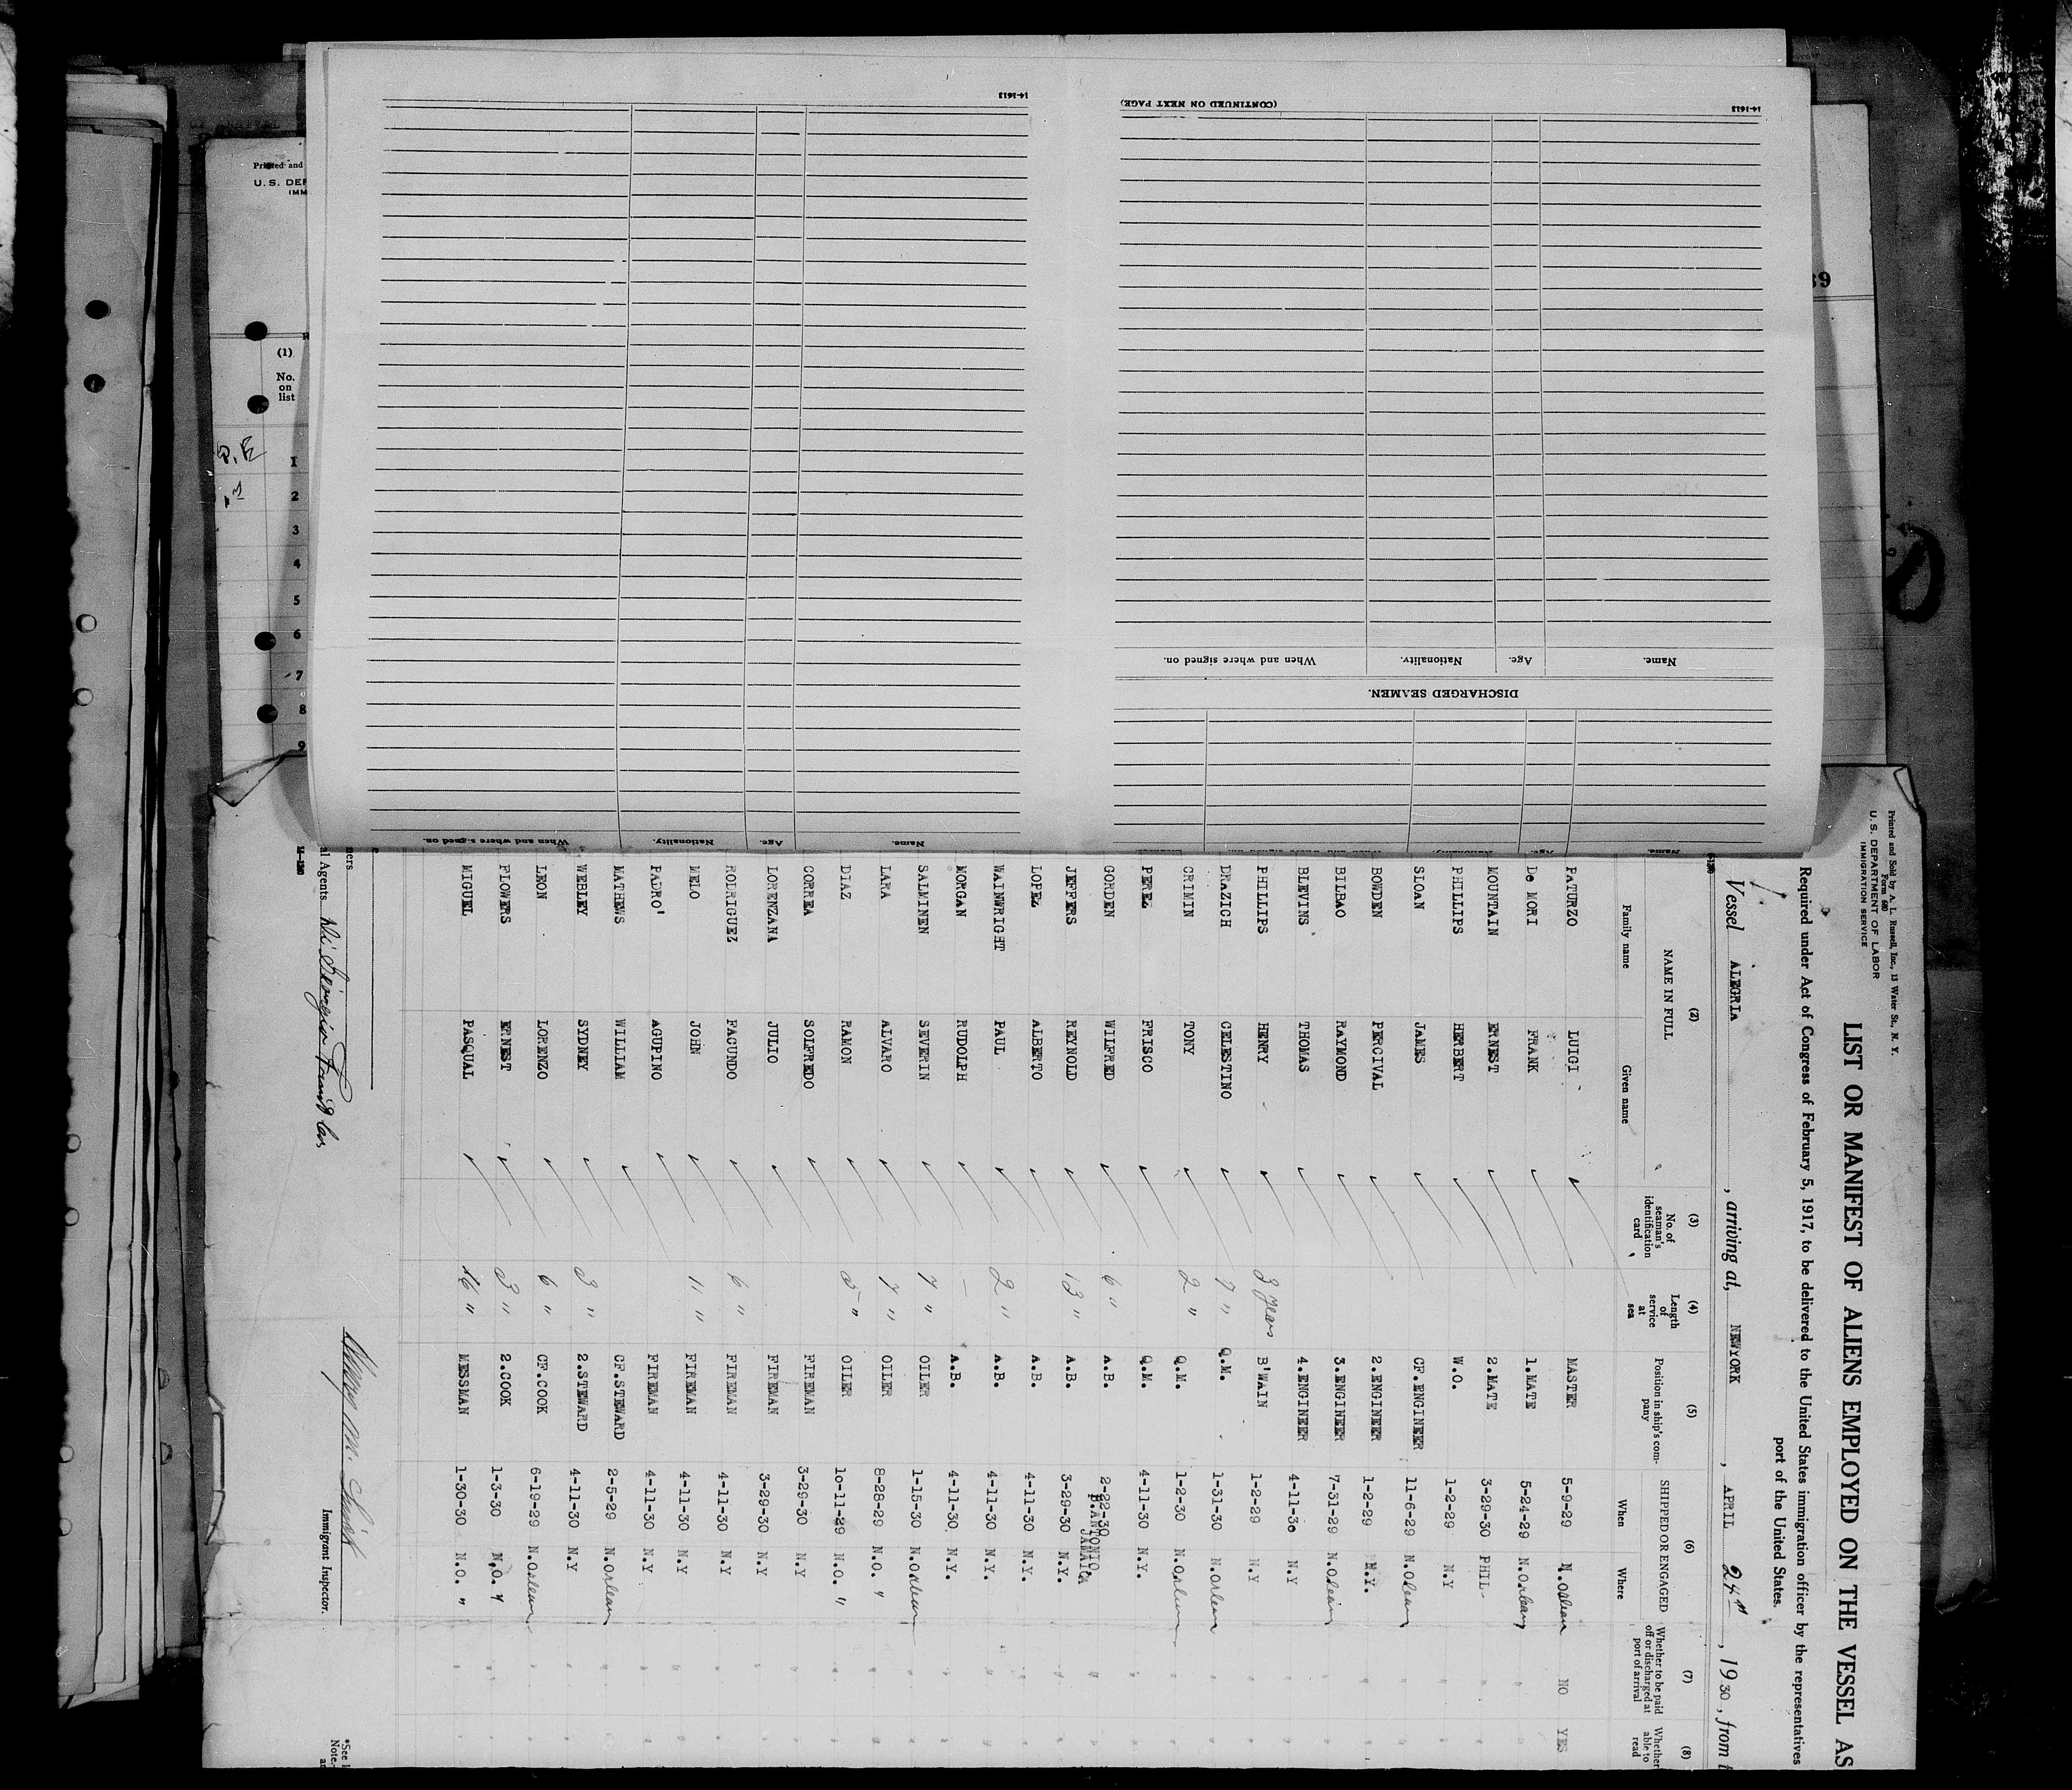 Printed and Sold by A. L. Russell, Inc., 13 Water St., N. Y.
Form 680
U. S. DEPARTMENT OF LABOR
IMMIGRATION SERVICE
LIST OR MANIFEST OF ALIENS EMPLOYED ON THE VESSEL AS
Required under Act of Congress of February 5, 1917, to be delivered to the United States immigration officer by the representatives
port of the United States.
Vessel ALEGRIA, arriving at, NEWYORK, APRIL 24th, 1930, from
(2) (3) (4) (5) (6) (7) (8)
NAME IN FULL No. of seaman's identification card Length of service at sea Position in ship's company SHIPPED OR ENGAGED Whether to be paid off or discharged at port of arrival Whether able to read
Family name Given name When Where
PATURZO LUIGI MASTER 5-9-29 N.Orlean NO YES
De MORI FRANK 1.MATE 5-24-29 N.Orlean
MOUNTAIN ERNEST 2.MATE 3-29-30 PHIL-
PHILLIPS HERBERT W.O. 1-2-29 N.Y
SLOAN JAMES CF.ENGINEER 11-6-29 N.Orlean
BOWDEN PERCIVAL 2.ENGINEER 1-2-29 N.Y.
BILBAO RAYMOND 3.ENGINEER 7-31-29 N.Orlean
BLEVINS THOMAS 4.ENGINEER 4-11-30 N.Y
PHILLIPS HENRY 3 years B'WAIN 1-2-29 N.Y
DRAZICH CELESTINO 7 " Q.M. 1-31-30 N.Orlean
CRIMIN TONY 2 " Q.M. 1-2-30 N.Orlean
PEREZ FRISCO Q.M. 4-11-30 N.Y.
GORDEN WILFRED 6 " A.B. 2-22-30 P.ANTONIO JAMAICA
JEFFERS REYNOLD 13 " A.B. 3-29-30 N.Y.
LOPEZ ALBERTO A.B. 4-11-30 N.Y.
WAINWRIGHT PAUL 2 " A.B. 4-11-30 N.Y.
MORGAN RUDOLPH — A.B. 4-11-30 N.Y.
SALMINEN SEVERIN 7 " OILER 1-15-30 N.Orlean
LARA ALVARO 7 " OILER 8-28-29 N.O. "
DIAZ RAMON 5 " OILER 10-11-29 N.O. "
CORREA SOLFREDO FIREMAN 3-29-30 N.Y
LORENZANA JULIO FIREMAN 3-29-30 N.Y
RODRIGUEZ FACUNDO 6 " FIREMAN 4-11-30 N.Y
MELO JOHN 11 " FIREMAN 4-11-30 N.Y
PADRO' AGUPINO FIREMAN 4-11-30 N.Y
MATHEWS WILLIAM CF.STEWARD 2-5-29 N.Orlean
WEBLEY SYDNEY 3 " 2.STEWARD 4-11-30 N.Y
LEON LORENZO 6 " CF.COOK 6-19-29 N.Orlean
FLOWERS ERNEST 3 " 2.COOK 1-3-30 N.O. "
MIGUEL PASQUAL 16 " MESSMAN 1-30-30 N.O. "
ners
al Agents Di Giorgio Fruit Co.
Immigrant Inspector.
*See
Note.
14-1613
(CONTINUED ON NEXT PAGE)
14-1613
When and where signed on. Nationality. Age. Name.
DISCHARGED SEAMEN.
When and where signed on. Nationality. Age. Name.
Printed and
U. S. DEP
IMM
(1)
No.
on
list
P.E
1
2
3
4
5
6
7
8
9
39